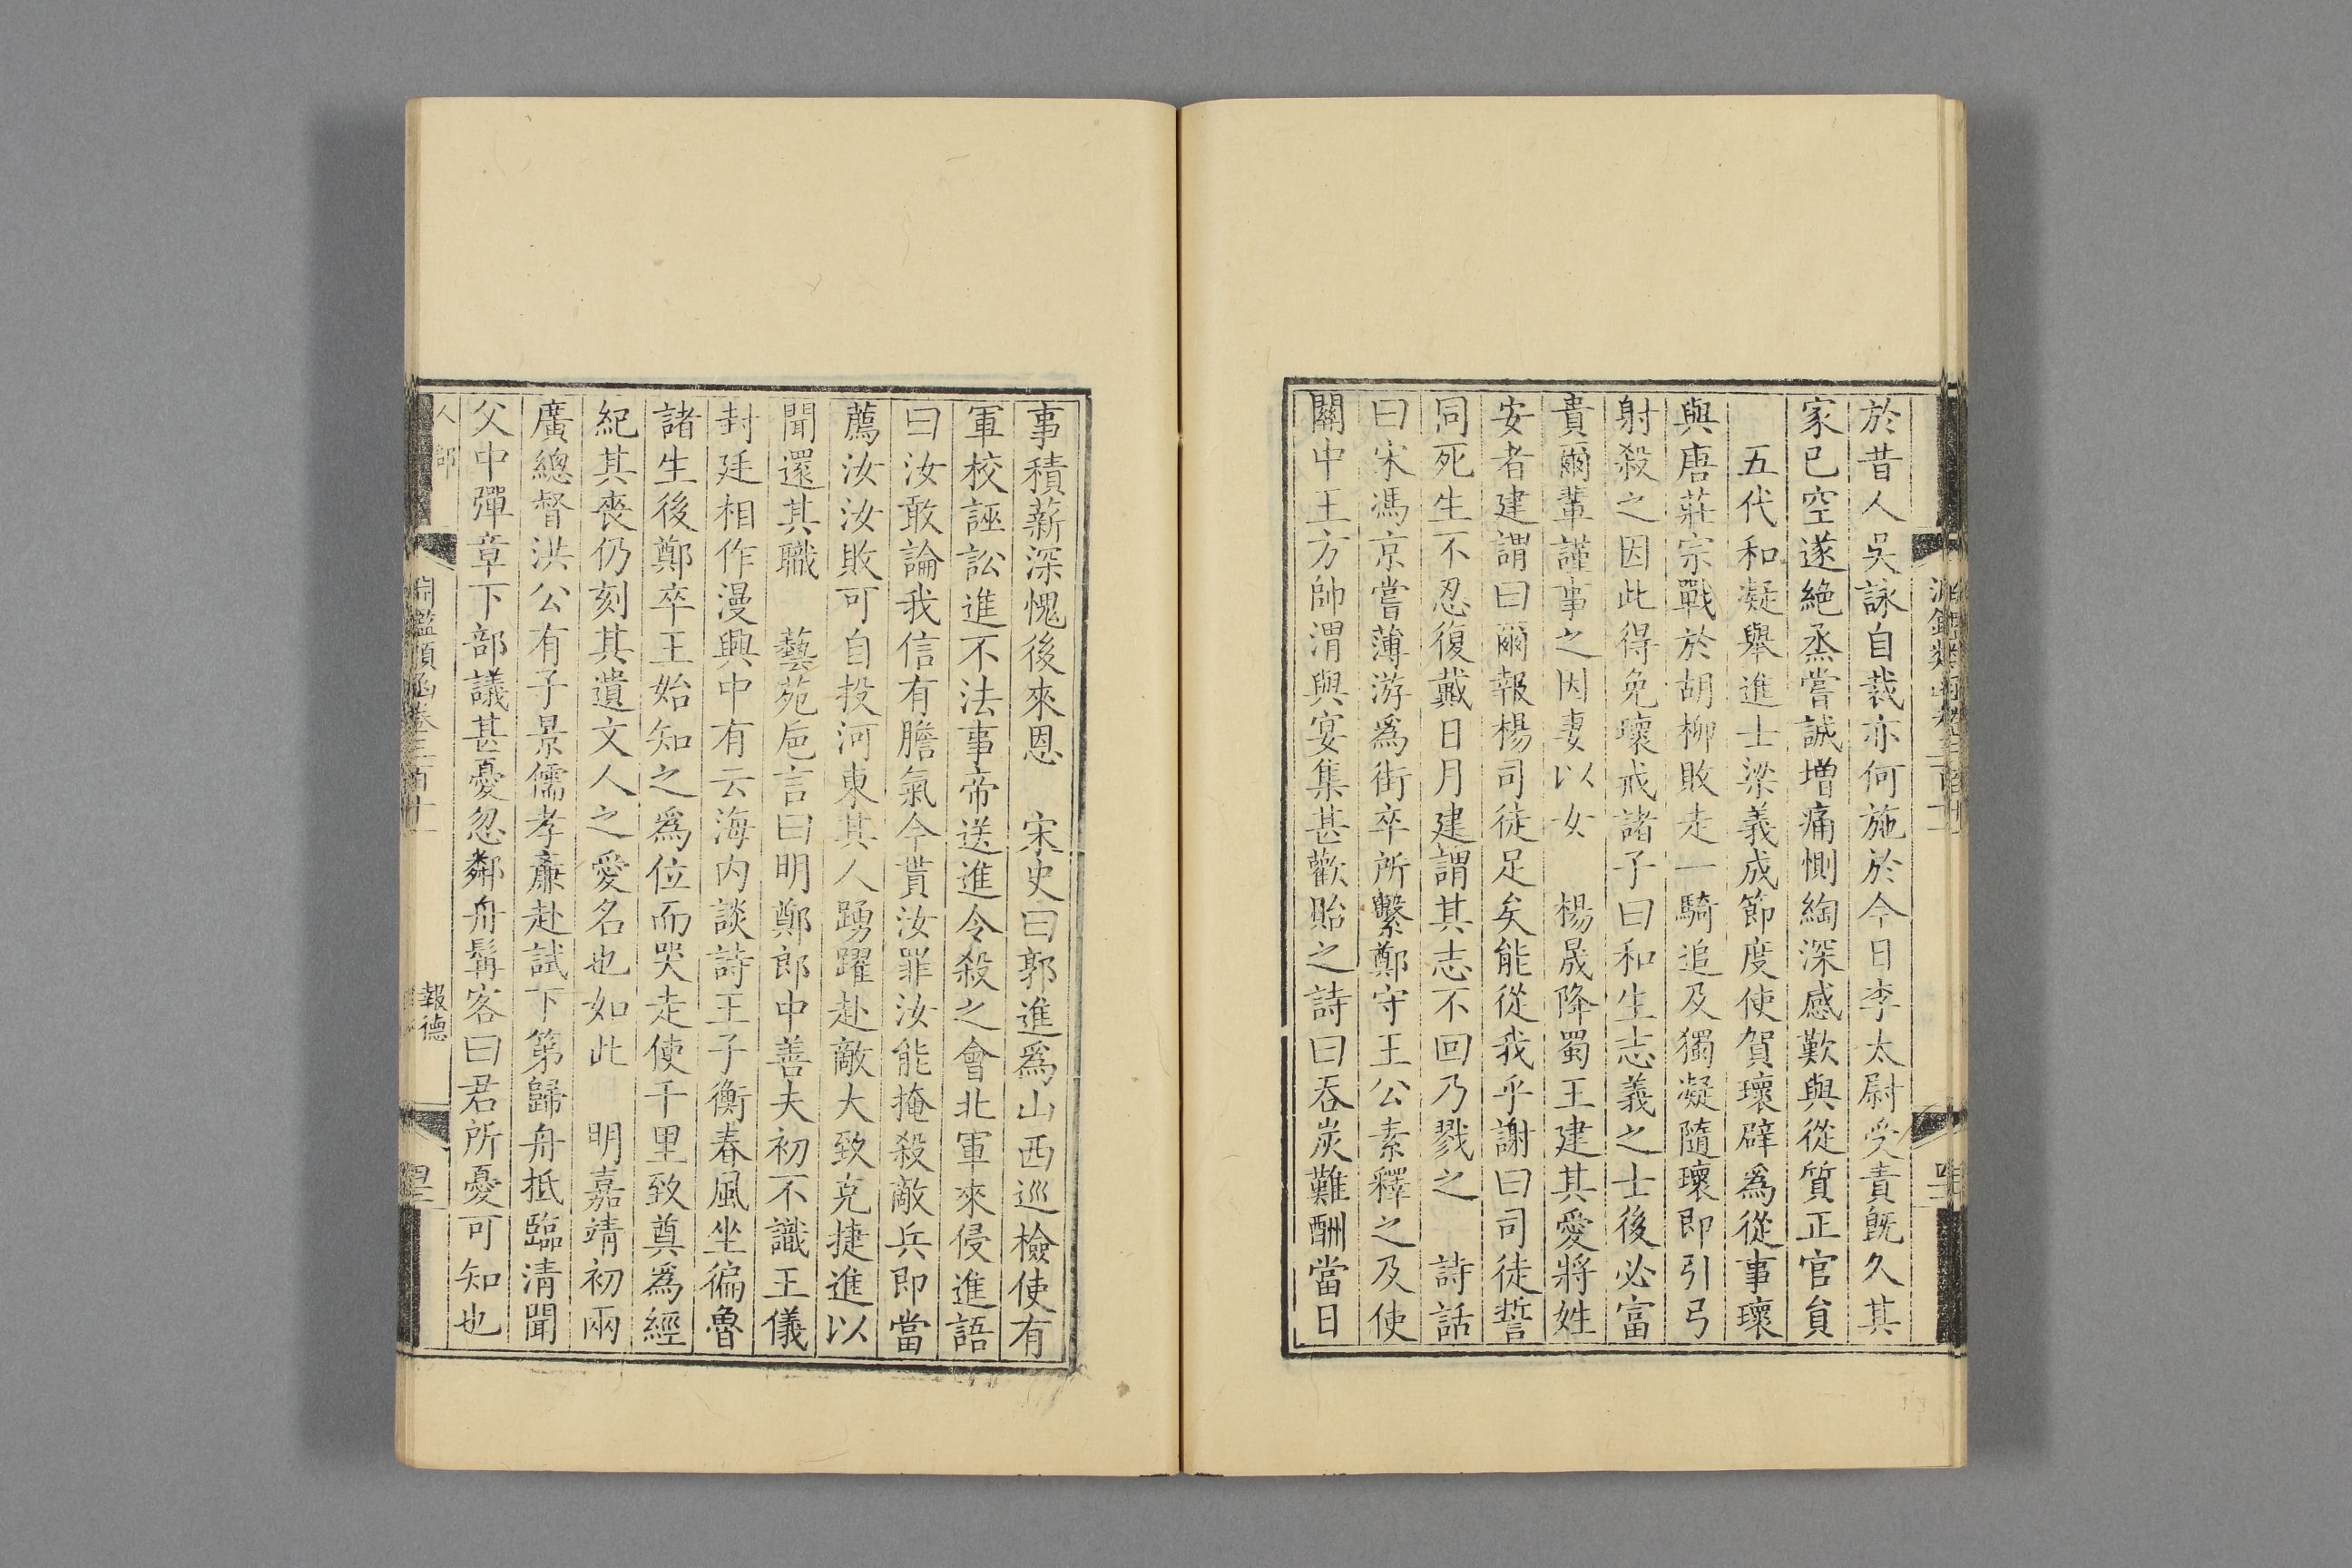 於昔人吳詠自裁亦何施於今日李太尉受責旣久其
家已空遂絕烝嘗誠增痛惻絢深感歎與從質正官負
五代和凝舉進士梁義成節度使賀瓌辟爲從事瓌
與唐莊宗戰於胡柳敗走一騎追及獨凝隨瓌卽引弓
射殺之因此得免瓌戒諸子曰和生志義之士後必富
貴爾輩謹事之因妻以女　楊晟降蜀王建其愛將姓
安者建謂曰爾報楊司徒足矣能從我乎謝曰司徒誓
同死生不忍復戴日月建謂其志不回乃戮之　詩話
曰宋馮京嘗薄游爲街卒所繫鄭守王公素釋之及使
關中王方帥渭與宴集甚歡貽之詩曰吞炭難酬當日
事積薪深愧後來恩　宋史曰郭進爲山西巡檢使有
軍校誣訟進不法事帝送進令殺之會北軍來侵進語
曰汝敢論我信有膽氣今貰汝罪汝能掩殺敵兵卽當
薦汝汝敗可自投河東其人踴躍赴敵大致克捷進以
聞還其職　藝苑巵言曰明鄭郎中善夫初不識王儀
封廷相作漫興中有云海內談詩王子衡春風坐徧魯
諸生後鄭卒王始知之爲位而哭走使千里致奠爲經
紀其喪仍刻其遺文人之愛名也如此　明嘉靖初兩
廣總督洪公有子景儒孝廉赴試下第歸舟抵臨清聞
父中彈章下部議甚憂忽鄰舟髯客曰君所憂可知也
人部
淵鑑類函卷三百十一
報德